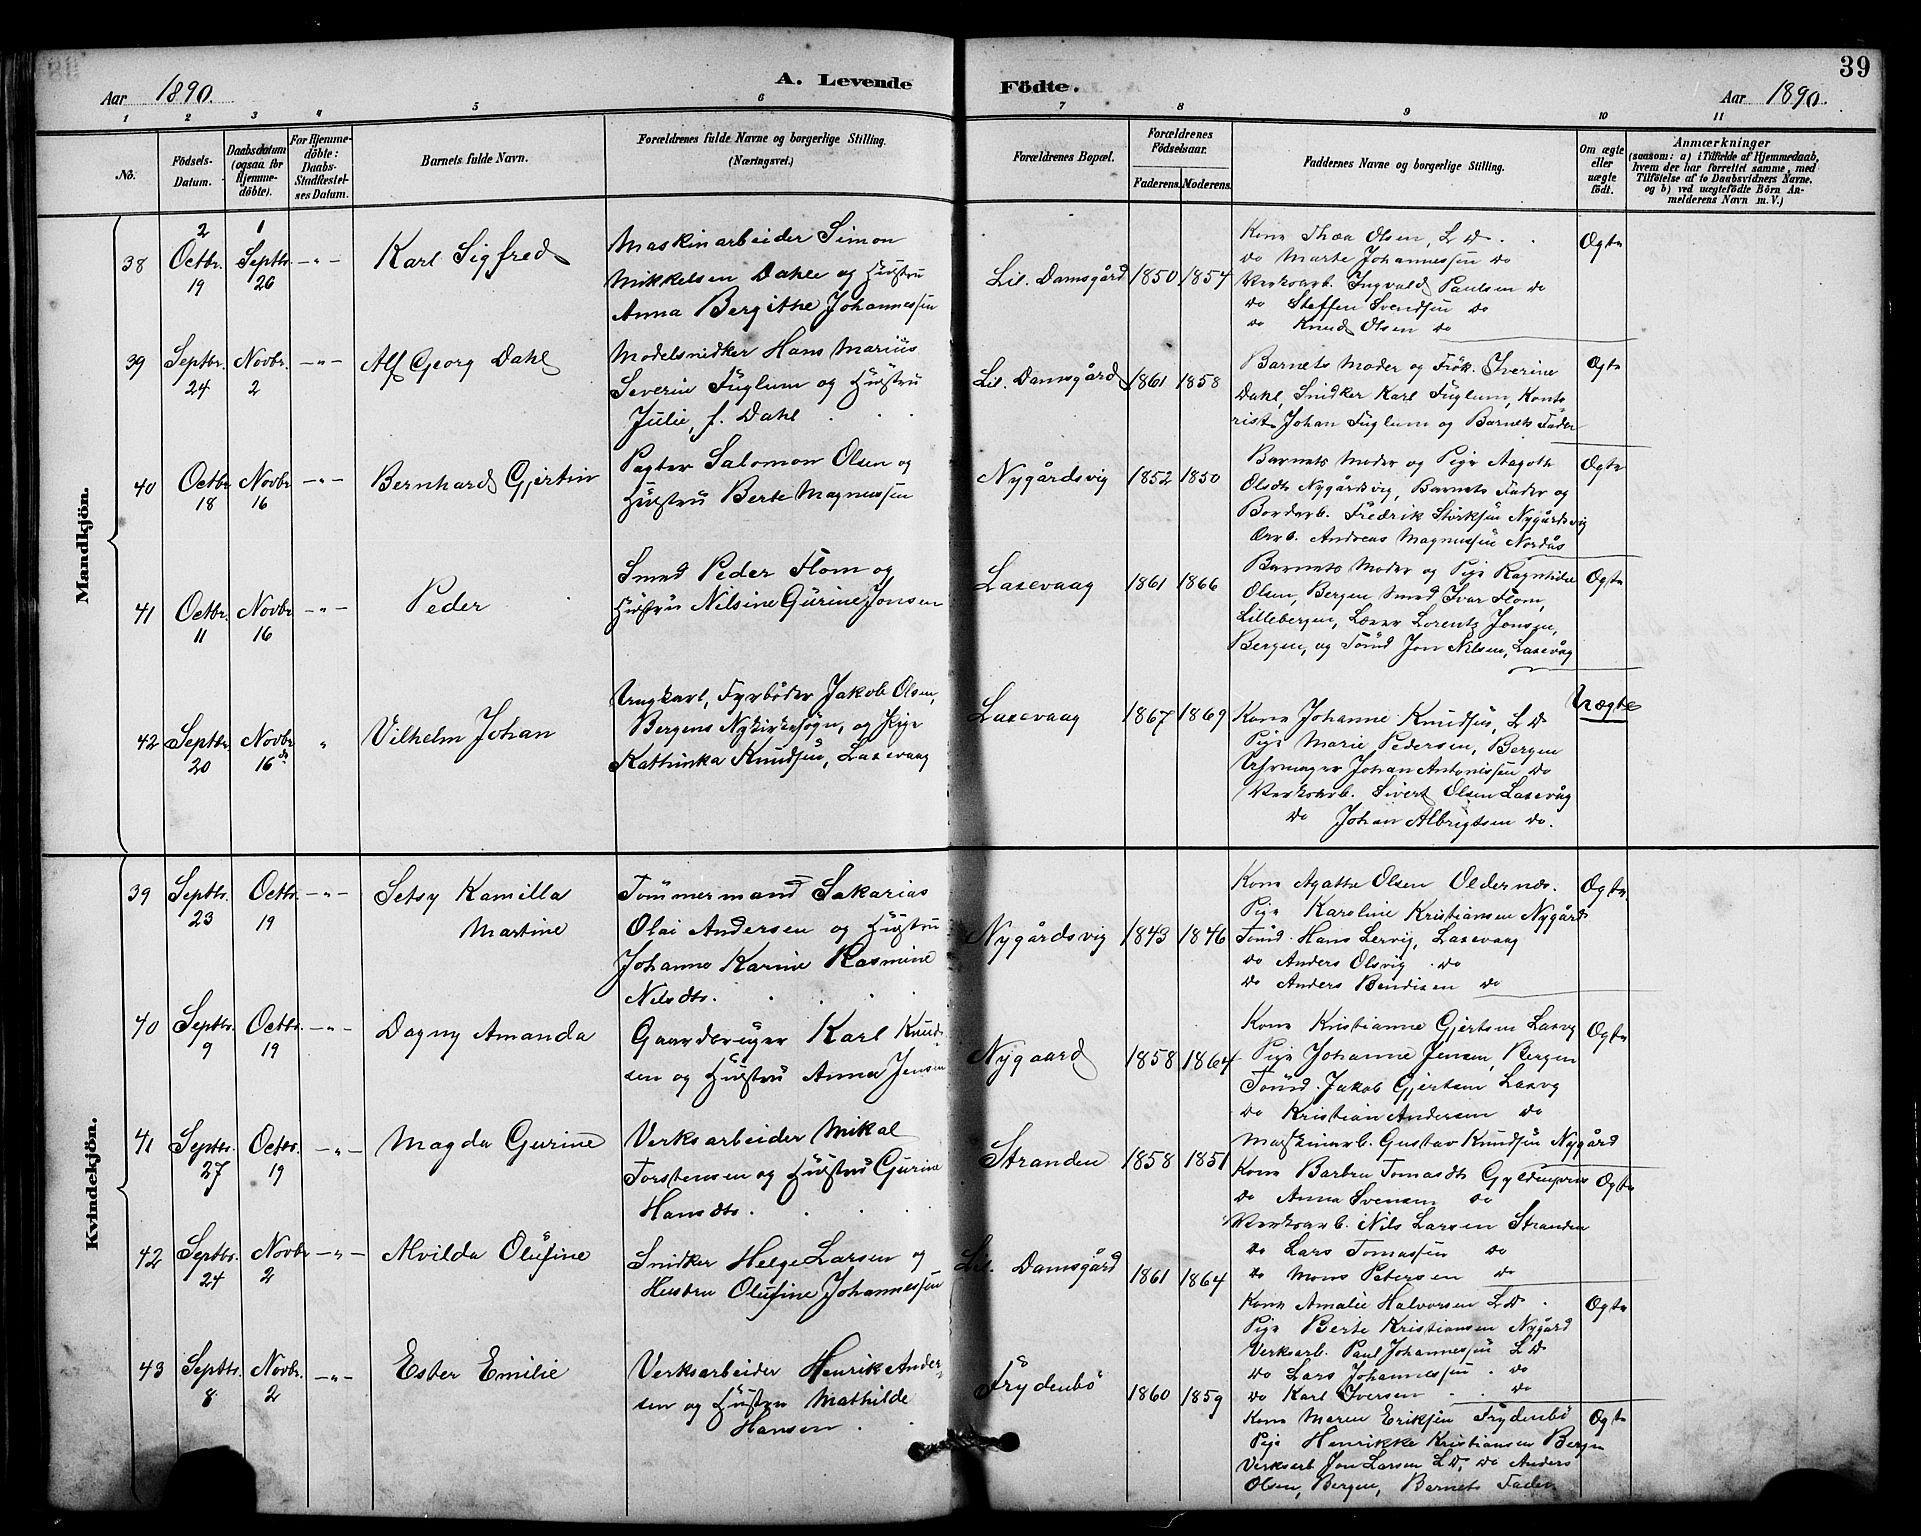 39
Aar 1890.
A. Levende Födte.
Aar 1890.
1 2 3 4 5 6 7 8 9 10 11
No.
Födsels-
Datum.
Daabsdatum
(ogsaa for
Hjemme-
döbte).
For Hjemme-
döbte:
Daabs-
Stadfæstel-
ses Datum.
Barnets fulde Navn.
Forældrenes fulde Navne og borgerlige Stilling.
(Næringsvei.)
Forældrenes Bopæl.
Forældrenes
Födselsaar.
Faderens.
Moderens.
Faddernes Navne og borgerlige Stilling.
Om ægte
eller
uægte
födt.
Anmærkninger
(saasom: a) i Tilfælde af Hjemmedaab,
hvem der har forrettet samme, med
Tilföielse af to Daabsvidners Navne,
og b) ved uægtefödte Börn An-
melderens Navn m. V.)
Mandkjön.
38
2
Octbr.
19
1
Septbr.
26
— " —
Karl Sigfred
Maskinarbeider Simon
Mikkelsen Dahle og Hustru
Anna Bergithe Johannessen
Lil. Damsgård
1850
1854
Kone Thea Olsen, L D.
do Marte Johannessen do
Verksarb. Ingvald Paulsen do
do Steffen Svendsen do
do Knud Olsen do
Ogte
39
Septbr.
24
Novbr.
2
— " —
Alf Georg Dahl
Modelsnidker Hans Marius
Severin Fuglum og Hustru
Julie, f. Dahl
Lil. Damsgård
1861
1858
Barnets Moder og Frök. Iverine
Dahl, Snidker Karl Fuglum, Konto
rist Johan Fuglum og Barnets Fader
Ogte
40
Octbr.
18
Novbr.
16
— " —
Bernhard Gjertin
Pagter Salomon Olsen og
Hustru Berte Magnussen
Nygårdsvig
1852
1850
Barnets Moder og Pige Aagoth
Olsdt Nygårdsvig, Barnets Fader og
Bordarb. Fredrik Störksen Nygårdsvig
Arb. Andreas Magnussen Nordås
Ogte
41
Octbr.
11
Novbr.
16
— " —
Peder
Smed Peder Flom og
Hustru Nilsine Gurine Jonsen
Laxevaag
1861
1866
Barnets Moder og Pige Ragnhilde
Olsen, Bergen Smed Ivar Flom,
Lillebergen, Lærer Lorentz Jonsen,
Bergen, og Tömd Jon Nilsen, Laxevåg
Ogte
42
Septbr.
20
Novbr.
16 de
"
Vilhelm Johan
Ungkarl, Fyrböder Jakob Olsen,
Bergens Nykirkesogn, og Pige
Kathinka Knudsen, Laxevaag
Laxevaag
1867
1869
Kone Johanne Knudsen, L D
Pige Marie Pedersen, Bergen
Uhrmager Johan Antonissen do
Verksarb. Sivert Olsen Laxevåg
do Johan Albrigtsen do.
Uægte
Kvindekjön.
39
Septbr.
23
Octbr.
19
— " —
Setsy Kamilla
Martine
Tömmermand Sakarias
Olai Andersen og Hustru
Johanne Karine Rasmine
Nilsdtr.
Nygårdsvig
1843
1846
Kone Agathe Olsen Oldernæs.
Pige Karoline Kristiansen Nygård
Tömd. Hans Lervig, Laxevaag
do Anders Olsvig do
do Anders Bendixen do
Ogte.
40
Septbr.
9
Octbr.
19
— " —
Dagny Amanda
Gaardbruger Karl Knud-
sen og Hustru Anna Jensen
Nygaard
1858
1864
Kone Kristianne Gjertsen Laxvg
Pige Johanne Jensen, Bergen
Tömd. Jakob Gjertsen Laxvg
do Kristian Andersen do
Maskinarb. Gustav Knudsen Nygård
Ogte
41
Septbr.
27
Octbr.
19
— " —
Magda Gurine
Verksarbeider Mikal
Torstensen og Hustru Gurine
Hansdtr.
Stranden
1858
1851
Kone Barbra Tomasdtr Gyldenpris
do Anna Svensen do
Verksarb. Nils Larsen Stranden
do Lars Tomassen do
do Mons Petersen do
Ogte
42
Septbr.
24
Novbr.
2
— " —
Alvilda Olufine
Snidker Helge Larsen og
Hustru Olufine Johannessen
Lil. Damsgård
1861
1864
Kone Amalie Halvorsen L D.
Pige Berte Kristiansen Nygård
Verksarb. Paul Johannessen L D
do Lars Johannessen do
do Karl Iversen do
Ogte
43
Septbr.
8
Novbr.
2
— " —
Ester Emilie
Verksarbeider Henrik Ander-
sen og Hustru Mathilde
Hansen
Frydenbö
1860
1859
Kone Maren Eriksen Frydenbö
Pige Henrikke Kristiansen Bergen
Verksarb Jon Larsen L D, do Anders
Olsen, Bergen, Barnets Fader.
Ogte